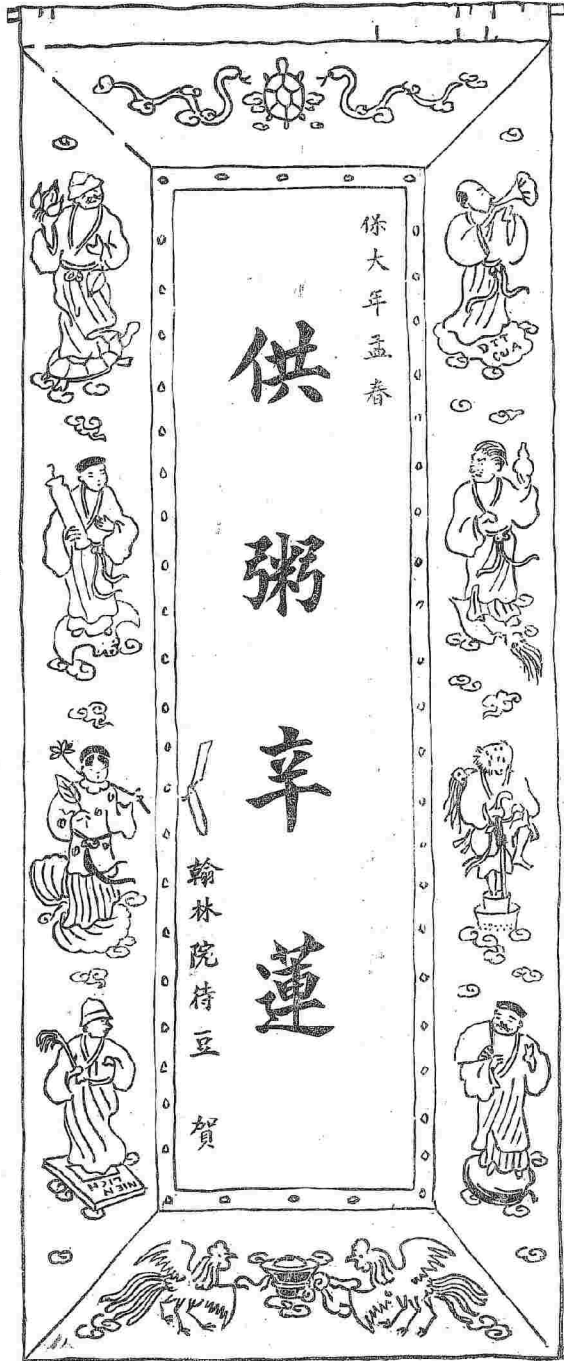 保大年孟春
供粥辛蓮
翰林院待豆 賀
DÍT CUA
NIEN LỊCH